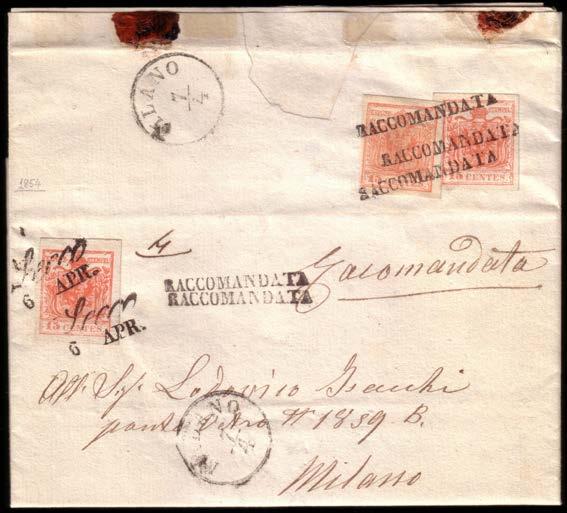 MILANO
7/4
RACCOMANDATA
RACCOMANDATA
RACCOMANDATA
15 CENTES
1854
Lecco
6 APR.
Lecco
6 APR.
15 CENTES
RACCOMANDATA
RACCOMANDATA
Racomandata
All. Sig. Lodovico
ponte Vetro N 1859 B.
MILANO
7/4
Milano